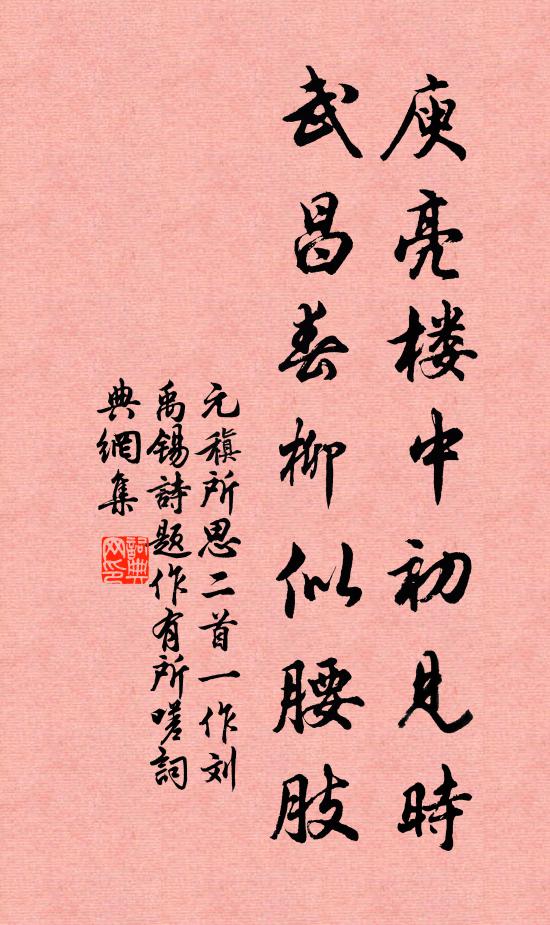 庾亮楼中初见時
武昌春柳似腰肢
元稹所思二首一作刘
禹锡詩题作有所嗟詞
典網集
詞典网印